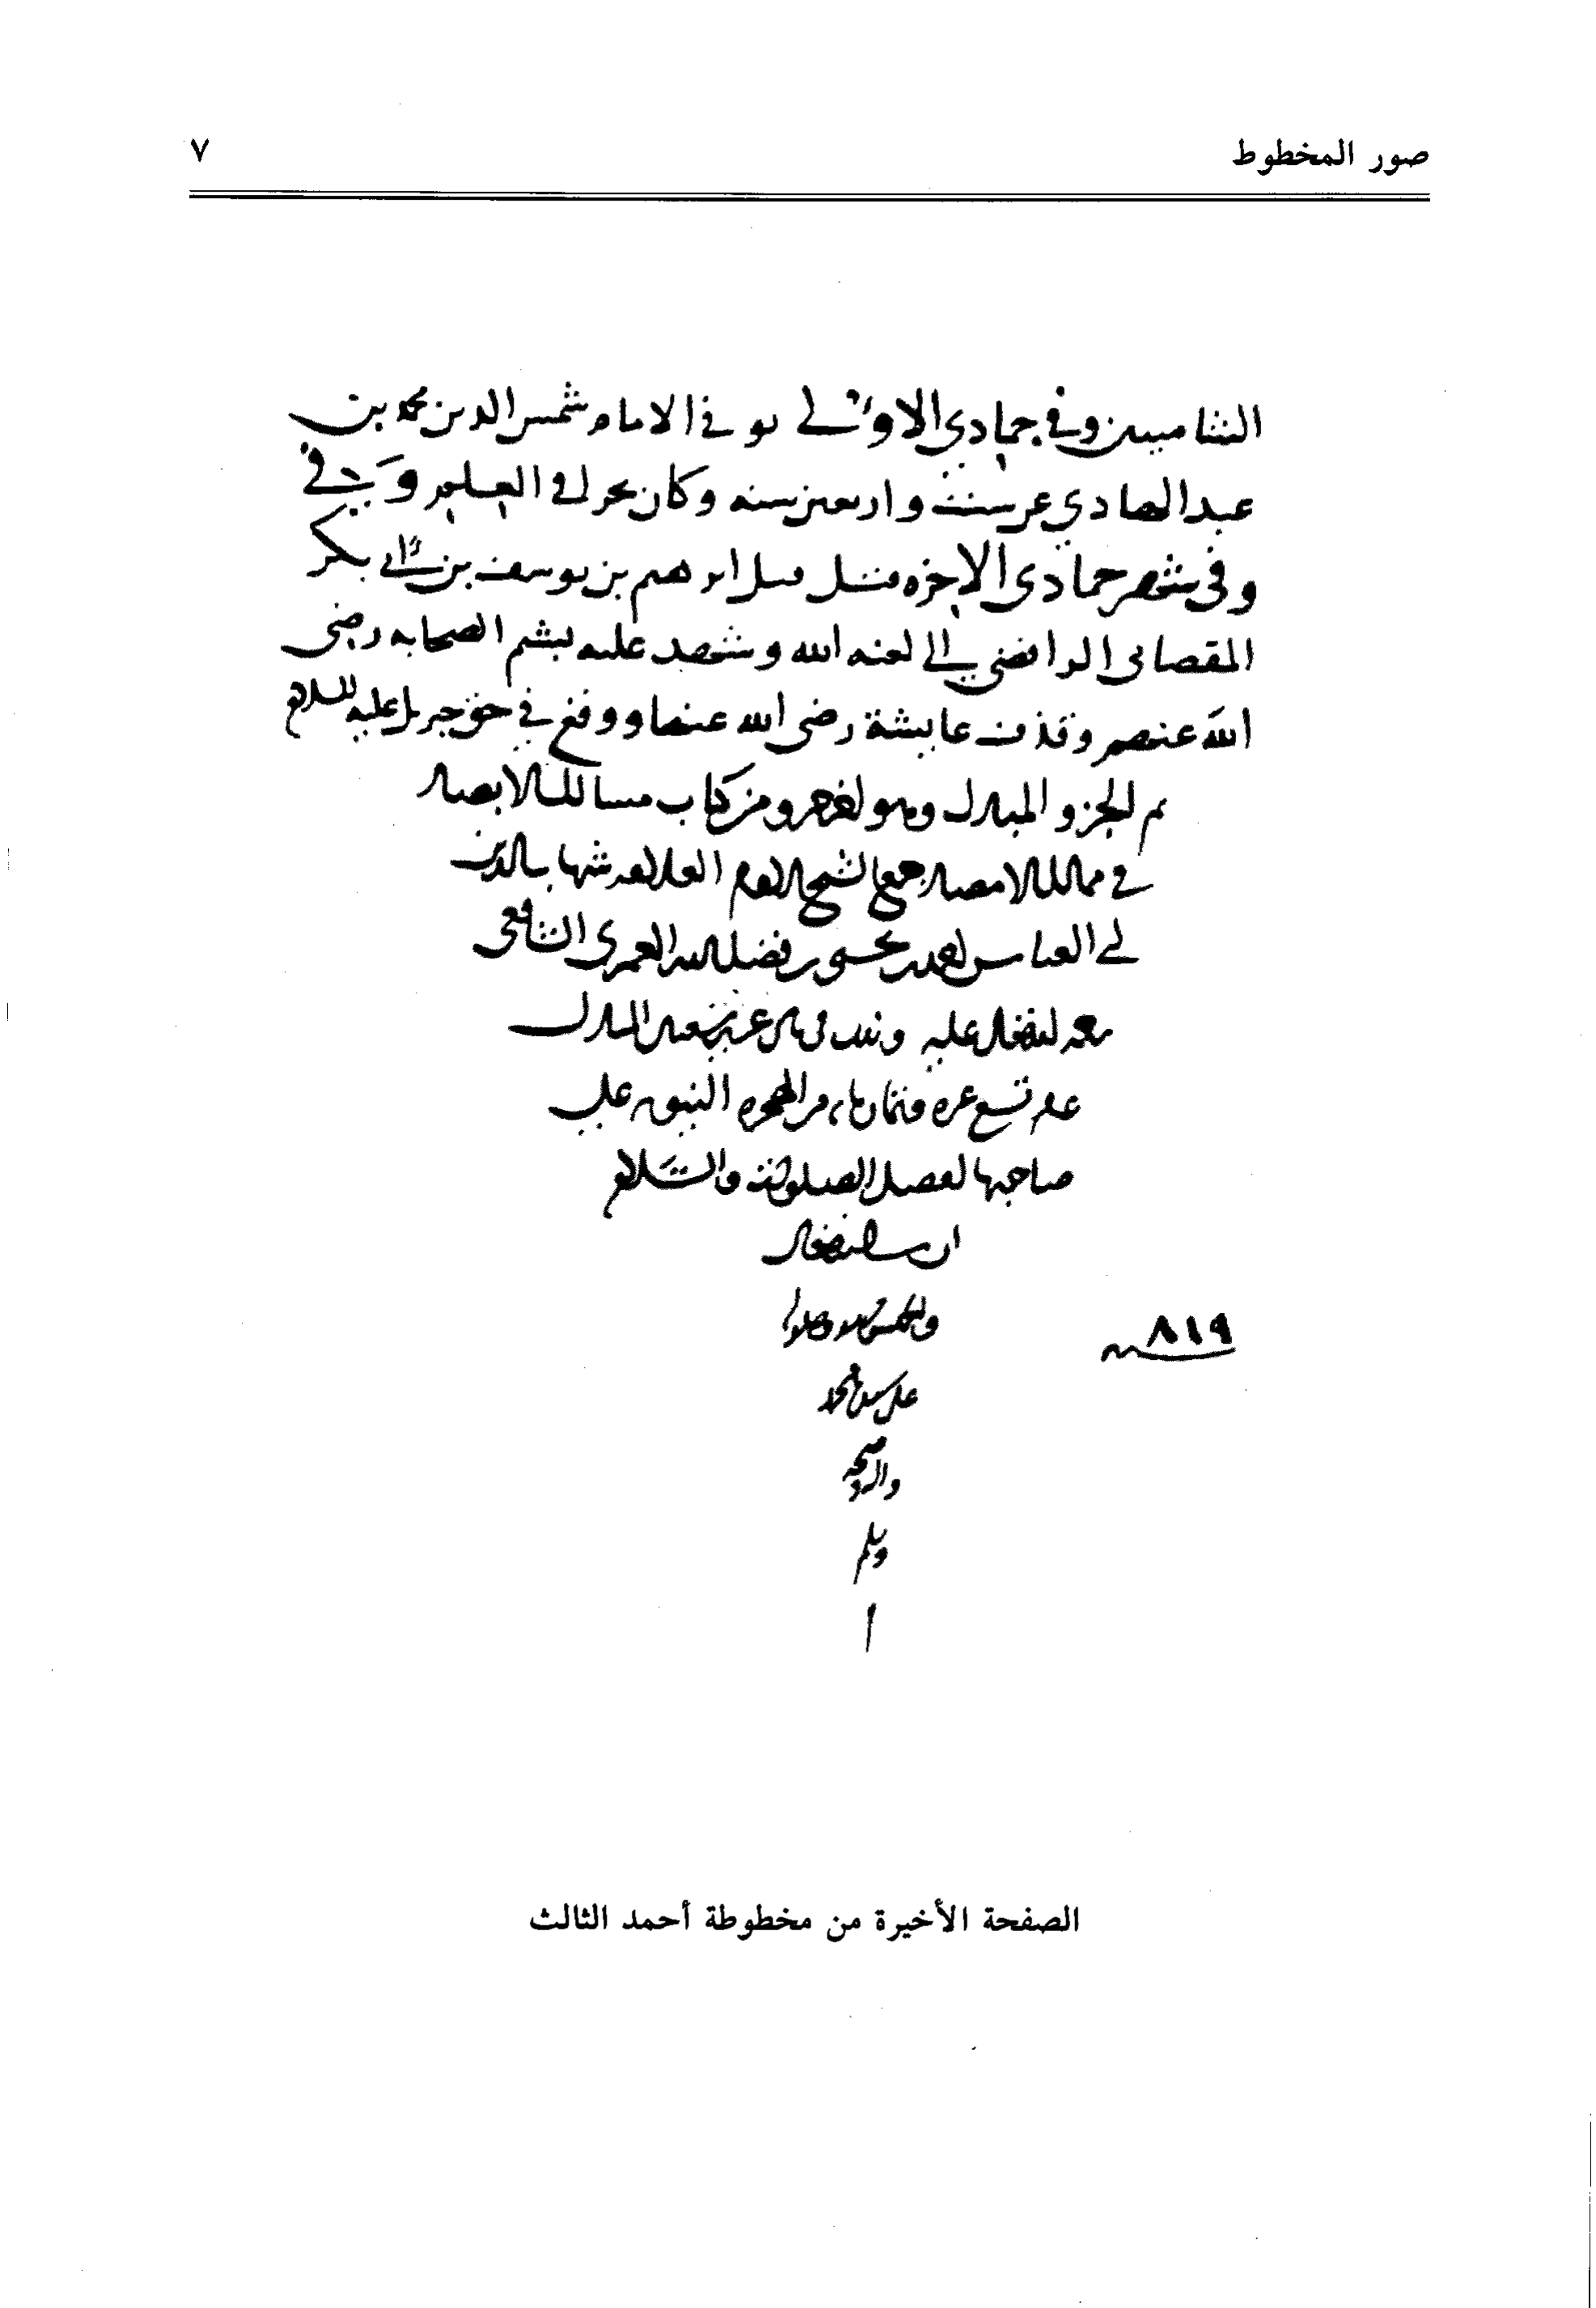 صور المخطوط
٧
الشاميين وفي جمادي الاولى توفي الامام شمس الدين محمد بن
عبد الهادي عن ست واربعين سنه وكان بحرا في العلم
وفي شهر جمادى الاخره قتل ابرهيم بن يوسف بن ابي بكر
المقصاتي الرافضي الى لعنه الله وشهد عليه بشتم الصحابه رضي
الله عنهم وقذف عايشة رضي الله عنها ووقع في حق جبريل عليه السلام
تم الجزو المبارك وهو اخر جزو من كتاب مسالك الابصار
في ممالك الامصار جمع الشيخ الامام العلامه شهاب الدين
ابي العباس احمد بن يحيى بن فضل الله العمري الشافعي
رحمه الله تعالى عليه شعبان المبارك
عام تسع عشره وثمان مايه من الهجره النبويه على
صاحبها افضل الصلوة والسلام
ان شا الله تعالى
والحمد لله وصلواته
على سيدنا محمد
واله وصحبه
وسلم
٨١٩
الصفحة الأخيرة من مخطوطة أحمد الثالث